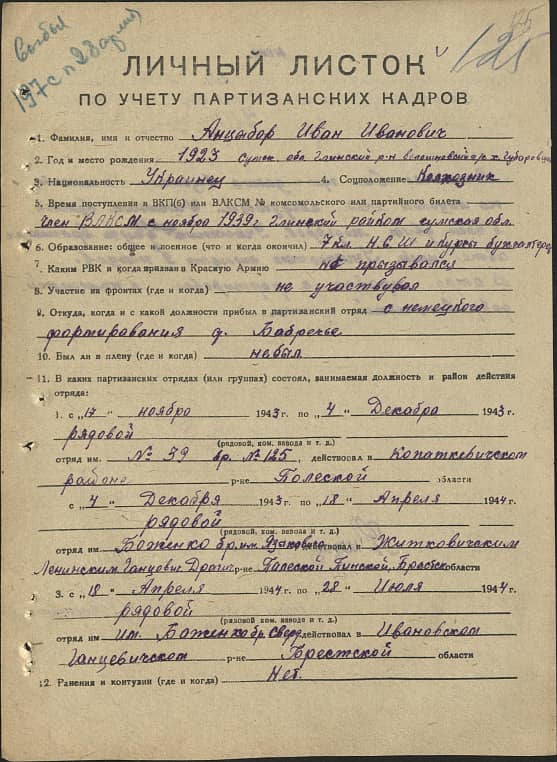 Выбыл
197 сп 28 армия
125
ЛИЧНЫЙ ЛИСТОК
ПО УЧЕТУ ПАРТИЗАНСКИХ КАДРОВ
1. Фамилия, имя и отчество Анцыбор Иван Иванович
2. Год и место рождения 1923 Сумск обл Глинский р-н х. Губаровщ
3. Национальность Украинец 4. Соцположение Колхозник
5. Время поступления в ВКП(б) или ВЛКСМ № комсомольского или партийного билета
член ВЛКСМ с ноября 1939г Глинский райком сумская обл.
6. Образование: общее и военное (что и когда окончил) 7 кл. Н.С.Ш и курсы бухгалтеров
7. Каким РВК и когда призван в Красную Армию не призывался
8. Участие на фронтах (где и когда) не участвувал
9. Откуда, когда и с какой должности прибыл в партизанский отряд с немецкого
формиравания д. Бабречье
10. Был ли в плену (где и когда) небыл
11. В каких партизанских отрядах (или группах) состоял, занимаемая должность и район действия
отряда:
1. с „17“ ноября 1943 г. по „4“ Декабря 1943 г.
рядовой
(рядовой, ком. взвода и т. д.)
отряд им. № 39 бр. № 125, действовал в Копаткевичском
районе р-не Полеской области
с „4“ Декабря 1943 г. по „18“ Апреля 1944 г.
рядовой
(рядовой, ком. взвода и т. д.)
отряд им Боженко бр. им. действовал в Житковичским
Ленинским Ганцевич р-не Палеской Пинской, Брестск области
3. с „18“ Апреля 1944 г. по „28“ Июля 1944 г.
рядовой
(рядовой, ком. взвода и т. д.)
отряд им им. Боженко бр. Сверд действовал в Ивановском
Ганцевичском р-не Брестской области
12. Ранения и контузии (где и когда) Нет.